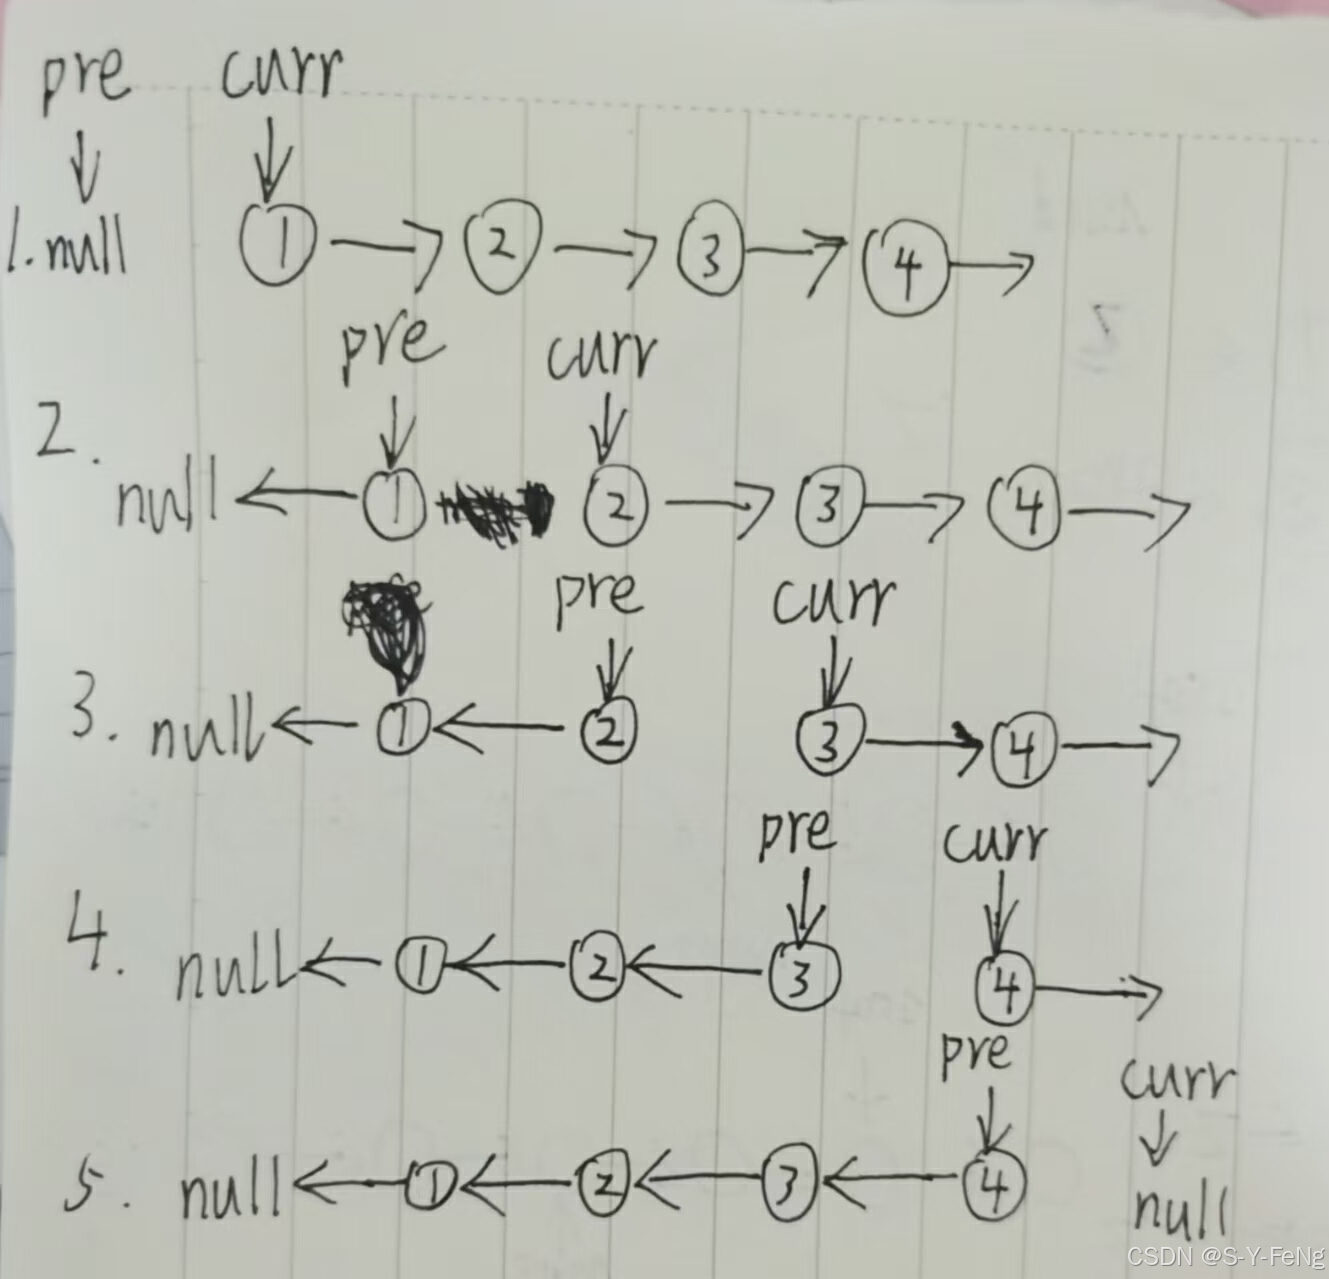 pre curr
1. null 1 2 3 4
pre curr
2. null 1 2 3 4
pre curr
3. null 1 2 3 4
pre curr
4. null 1 2 3 4
pre curr
5. null 1 2 3 4 null
CSDN @S-Y-FeNg